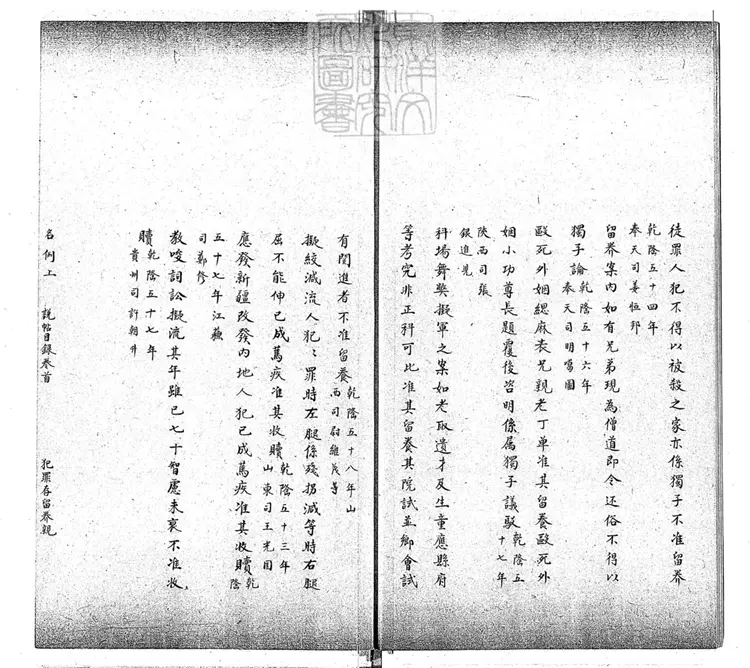 徒罪人犯不得以被殺之家亦係獨子不准留养
乾隆五十四年
奉天司姜恒邦
留养案内如有兄弟現為僧道即令还俗不得以
獨子論 乾隆五十六年
奉天司明
毆死外姻緦麻表兄親老丁单准其留養毆死外
姻小功尊長題覆後咨明係属獨子議駁 乾隆五十七年
陝西司張
銀進光
科場舞獘擬軍之案如考取遺才及生童應縣府
等考究非正科可比准其留養其院試並鄉會試
有関進者不准留養 乾隆五十八年山
西司尉維茂等
擬絞減流人犯犯罪時左腿係殘拐減等時右腿
屈不能伸已成篤疾准其收贖 乾隆五十三年
山東司王光
應發新疆改發内地人犯已成篤疾准其收贖 乾隆
五十七年江蘇
司鄭修
教唆詞訟擬流其年雖已七十智慮未衰不准收
贖 乾隆五十七年
貴州司許朝升
名例上 説帖目録卷首 犯罪存留养親
東洋文化研究所圖書